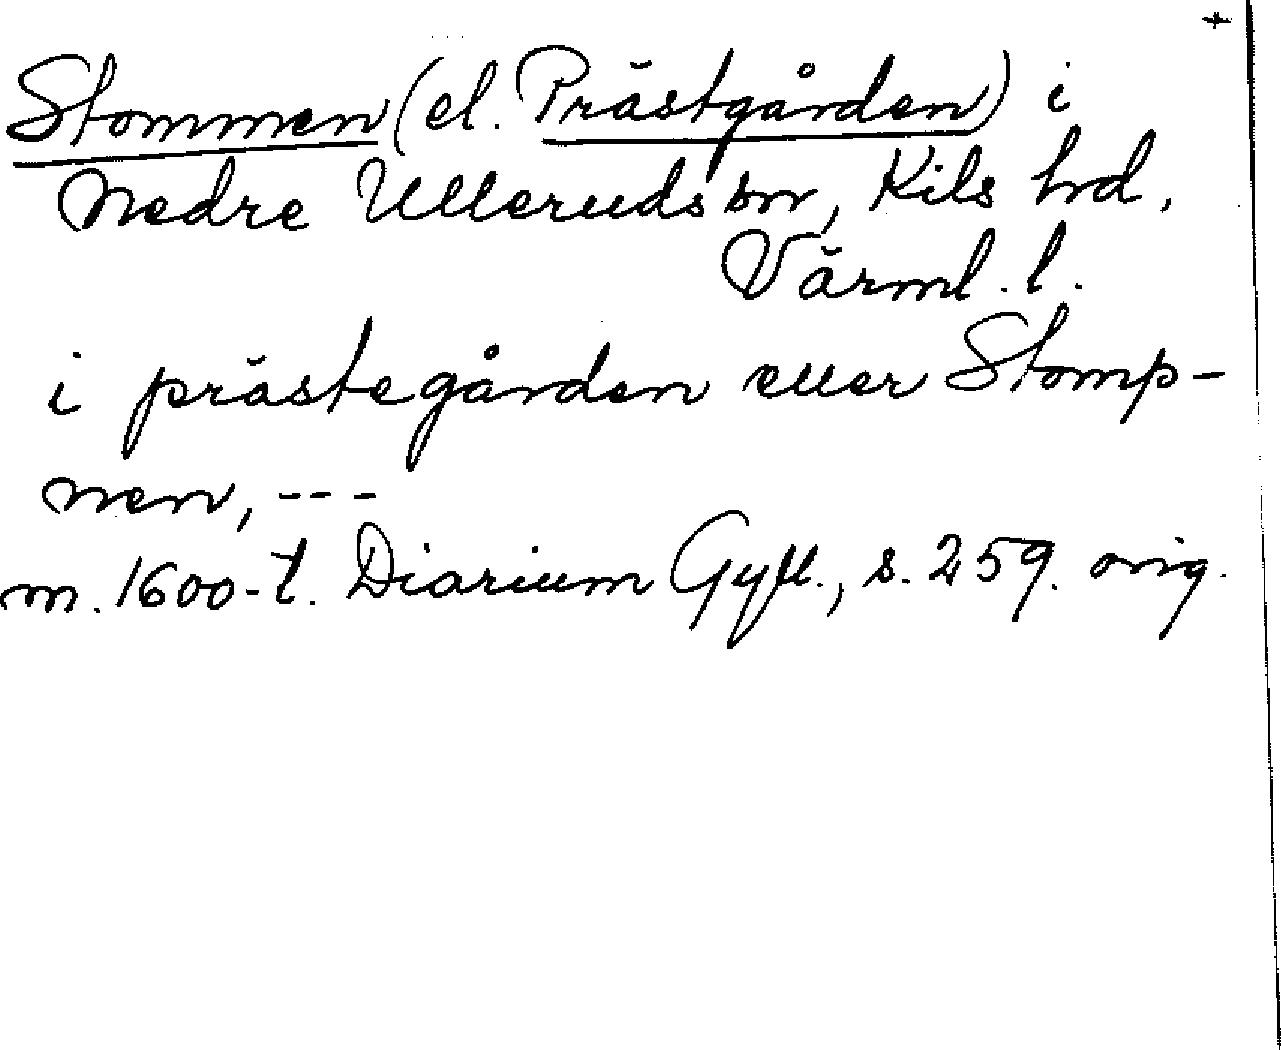 +
Stommen (el. Prästgården) i
Nedre Ulleruds sn, Kils hd,
Värml. l.
i prästegården eller Stomp-
nen, ---
m. 1600-t. Diarium Gyll., s. 259. orig.